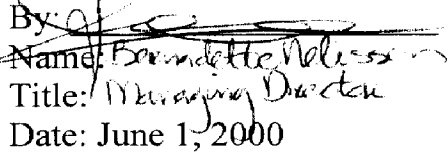 By:
Name: Bernadette
Title: Managing Director
Date: June 1, 2000